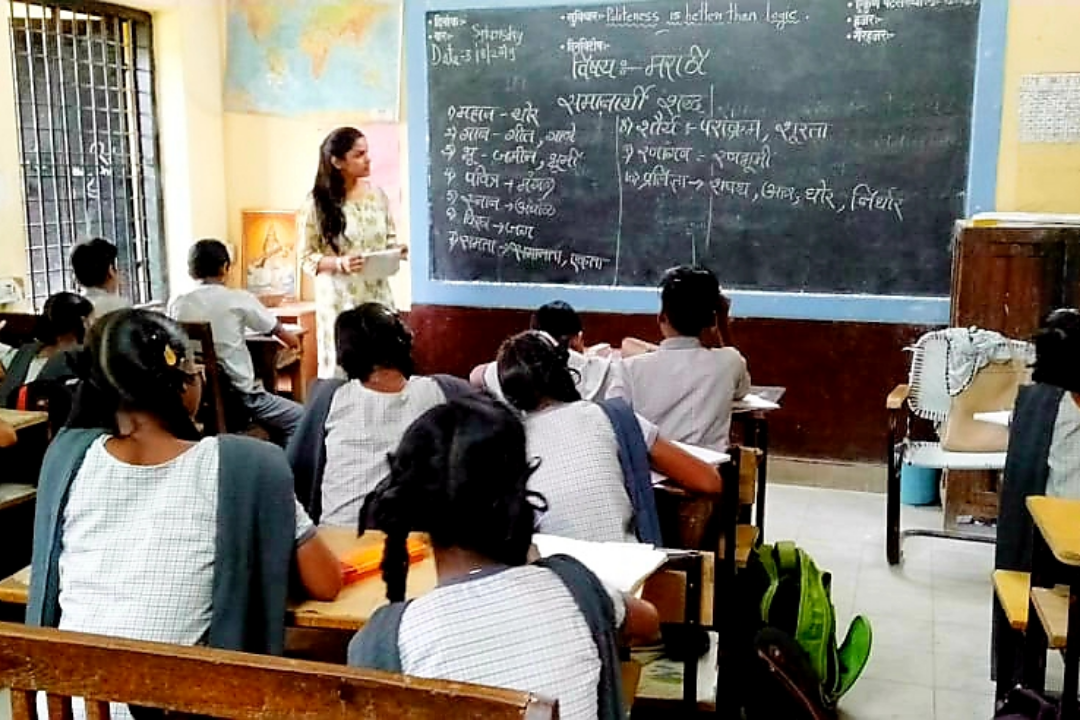 दिनांक:-
वार:- Saturday
सुविचार:- Politeness is better than logic.
हजर:-
गैरहजर:-
दिनविशेष:-
विषय :- मराठी
समानार्थी शब्द
1) महान - थोर
2) गान - गीत, गाणे
3) भू - जमीन, भूमी
4) पवित्र → मंगल
5) स्नान → अंघोळ
6) विश्व → जग
7) समता → समानता, एकता
8) शौर्य :- पराक्रम, शूरता
9) रणांगण :- रणभूमी
10) प्रतिज्ञा → शपथ, आण, घोर, निर्धार